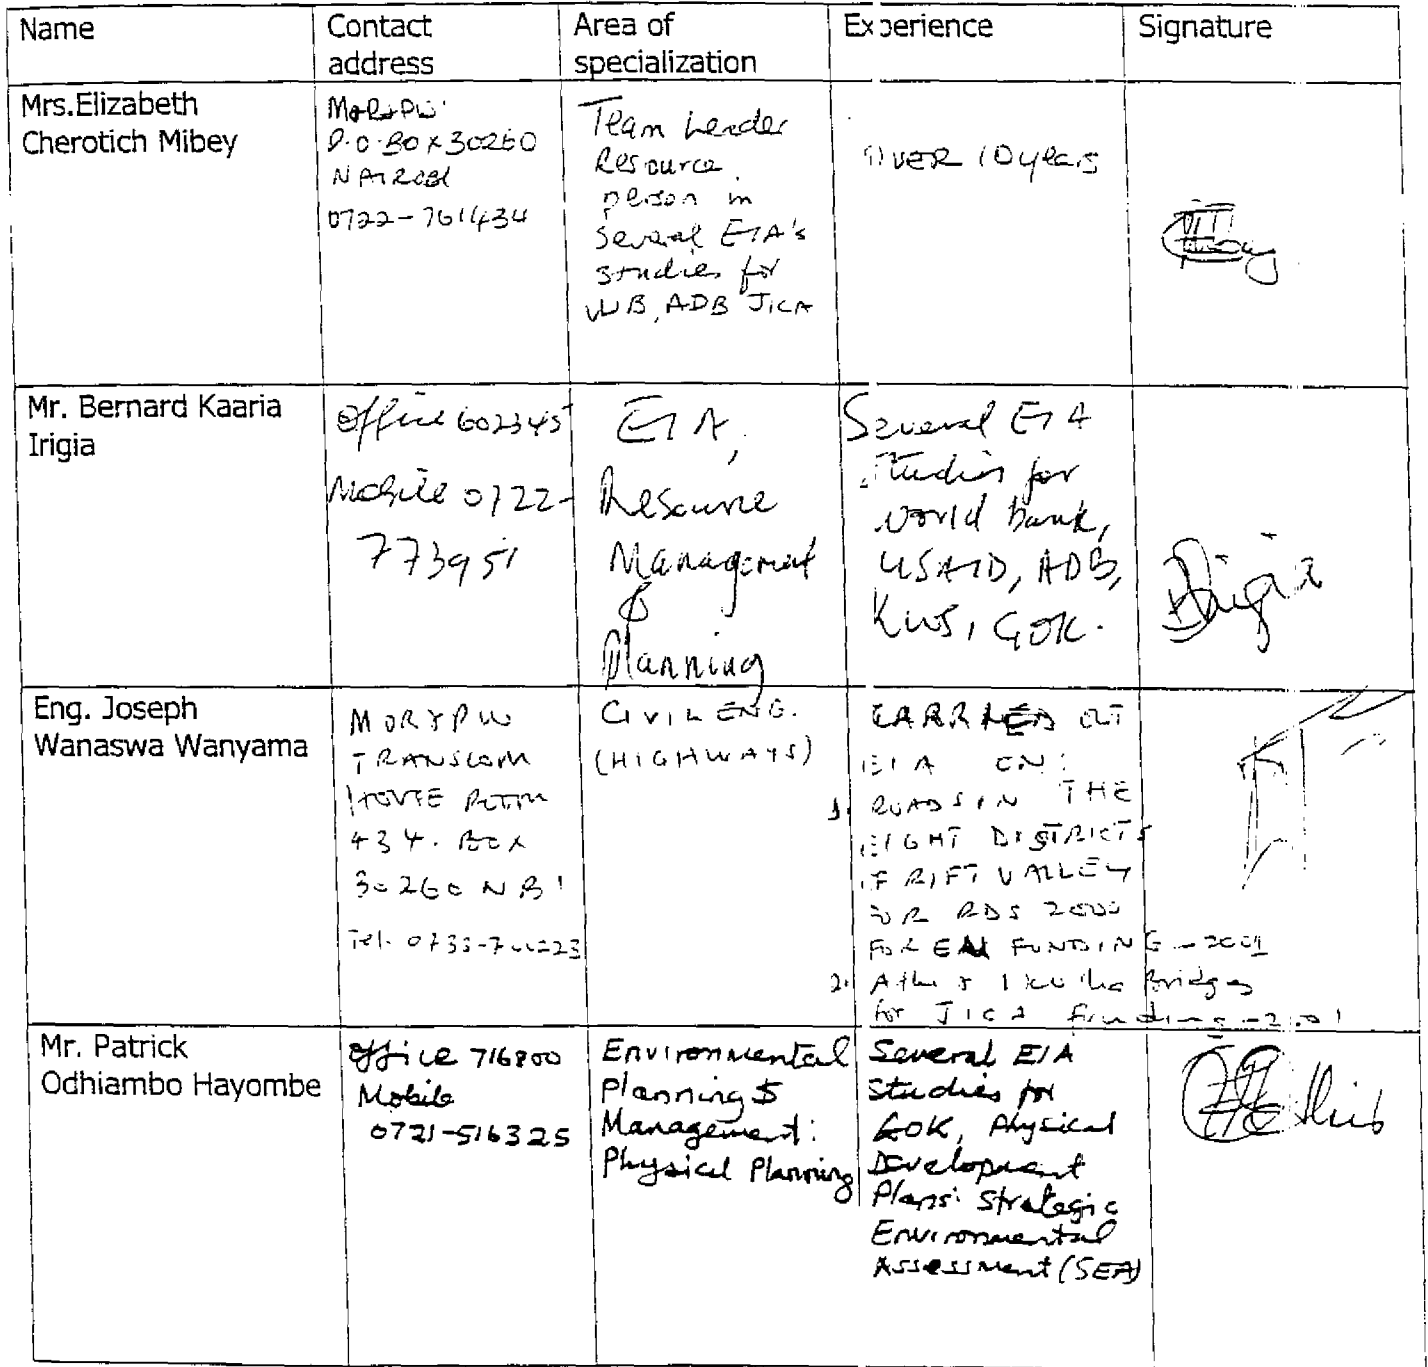 Name
Contact
address
Area of
specialization
Experience
Signature
Mrs.Elizabeth
Cherotich Mibey
MoR&PW
P.O.BOX 30260
NAIROBI
0722-761434
Team Leader
Resource
person in
several EIA's
studies for
WB, ADB JICA
OVER 10 years
Mr. Bernard Kaaria
Irigia
Office 602345
Mobile 0722-
773951
EIA,
Resource
Management
&
Planning
Several EIA
Studies for
World bank,
USAID, ADB,
KWS, GOK.
Irigia
Eng. Joseph
Wanaswa Wanyama
MOR&PW
TRANSCOM
HOUSE ROOM
434. BOX
30260 NBI
Tel. 0733-
CIVIL ENG.
(HIGHWAYS)
CARRIED OUT
EIA ON:
1. ROADS IN THE
EIGHT DISTRICTS
OF RIFT VALLEY
FOR RDS 2000
FOR EU FUNDING - 2001
2. Athi & Ikutha Bridges
for JICA funding - 2001
Mr. Patrick
Odhiambo Hayombe
Office 716800
Mobile
0721-516325
Environmental
Planning &
Management:
Physical Planning
Several EIA
Studies for
GOK, Physical
Development
Plans: Strategic
Environmental
Assessment (SEA)